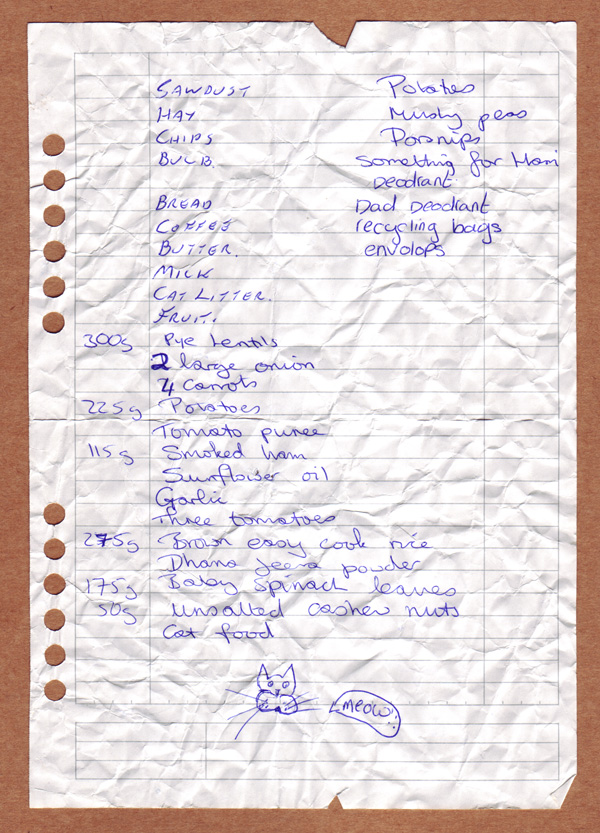 SAWDUST
HAY
CHIPS
BULB.
BREAD
COFFEE
BUTTER.
MILK
CAT LITTER.
FRUIT.
300g Pye Lentils
2 large onion
4 Carrots
225g Potatoes
Tomato puree
115g Smoked ham
Sunflower oil
Garlic
Three tomatoes
275g Brown easy cook rice
Dhana Jeera powder
175g Baby Spinach leaves
50g Unsalted cashew nuts
Cat food
Potatoes
Mushy peas
Parsnips
Something for Mam
Deodrant
Dad Deodrant
recycling bags
envolops
meow